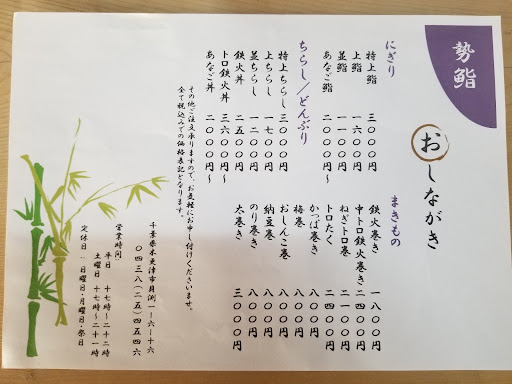 勢鮨
おしながき
にぎり
特上鮨 三〇〇〇円
上鮨 一六〇〇円
並鮨 一一〇〇円
あなご鮨 二〇〇〇円～
ちらし／どんぶり
特上ちらし 三〇〇〇円
上ちらし 一七〇〇円
並ちらし 一二〇〇円
鉄火丼 二五〇〇円
トロ鉄火丼 三六〇〇円～
あなご丼 二〇〇〇円～
まきもの
鉄火巻き 一八〇〇円
中トロ鉄火巻き 二四〇〇円
ねぎトロ巻 二一〇〇円
トロたく 二四〇〇円
かっぱ巻き 八〇〇円
梅巻 八〇〇円
おしんこ巻き 八〇〇円
納豆巻 八〇〇円
のり巻き 八〇〇円
太巻き 三〇〇〇円
その他ご注文承りますので、お気軽にお申し付けくださいませ。
全て税込みでの価格表記となります。
千葉県木更津市貝渕一ー六ー十六
〇四三八（二五）四五四六
営業時間：
平日 十七時～二十二時
土曜日 十七時～二十一時
定休日：日曜日・月曜日・祭日